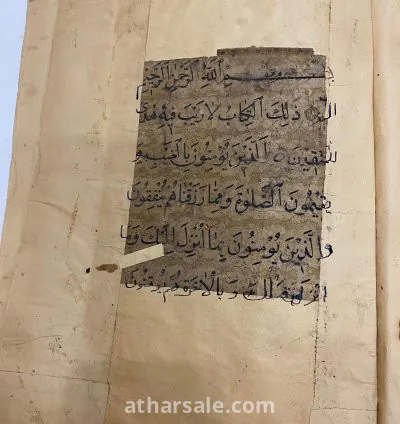 بسم الله الرحمن الرحيم
الم ذلك الكتاب لا ريب فيه هدى
للمتقين الذين يؤمنون بالغيب و
يقيمون الصلوة ومما رزقناهم ينفقون
والذين يؤمنون بما انزل اليك وما
انزل من قبلك وبالاخرة هم يوقنون
atharsale.com